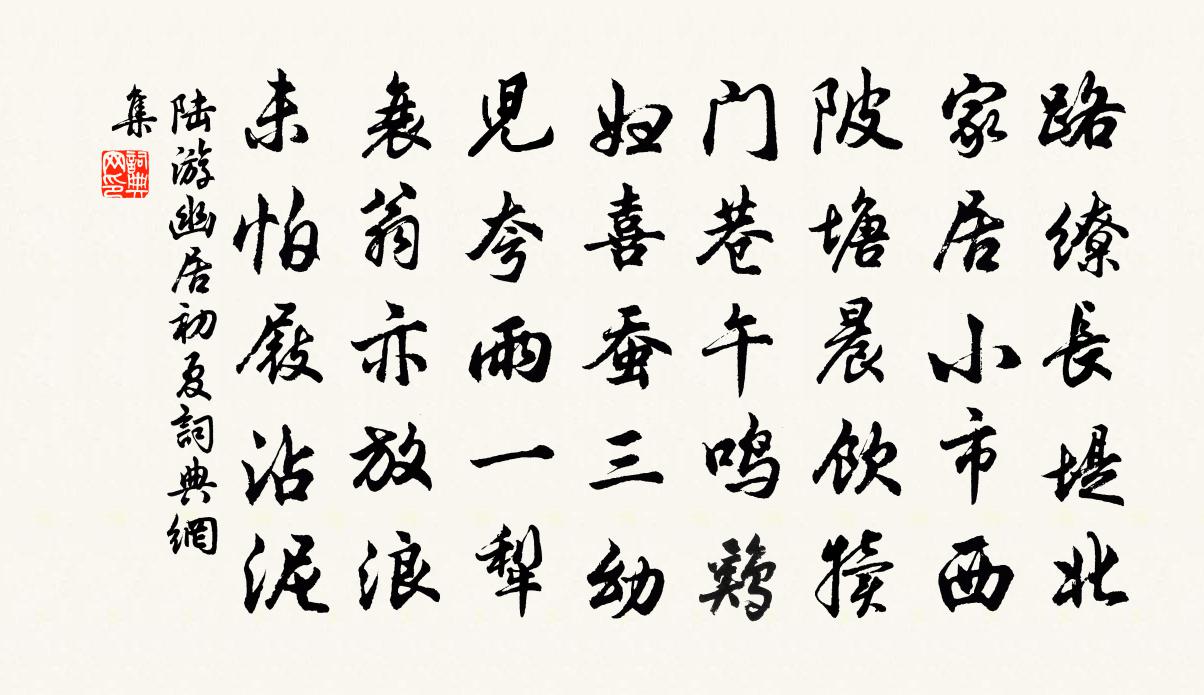 路繚長堤北
家居小市西
陂塘晨飲犢
门巷午鸣鷄
妇喜蚕三幼
児夸雨一犁
衰翁亦放浪
未怕屐沾泥
陆游幽居初夏詞典網
集
詞典网印